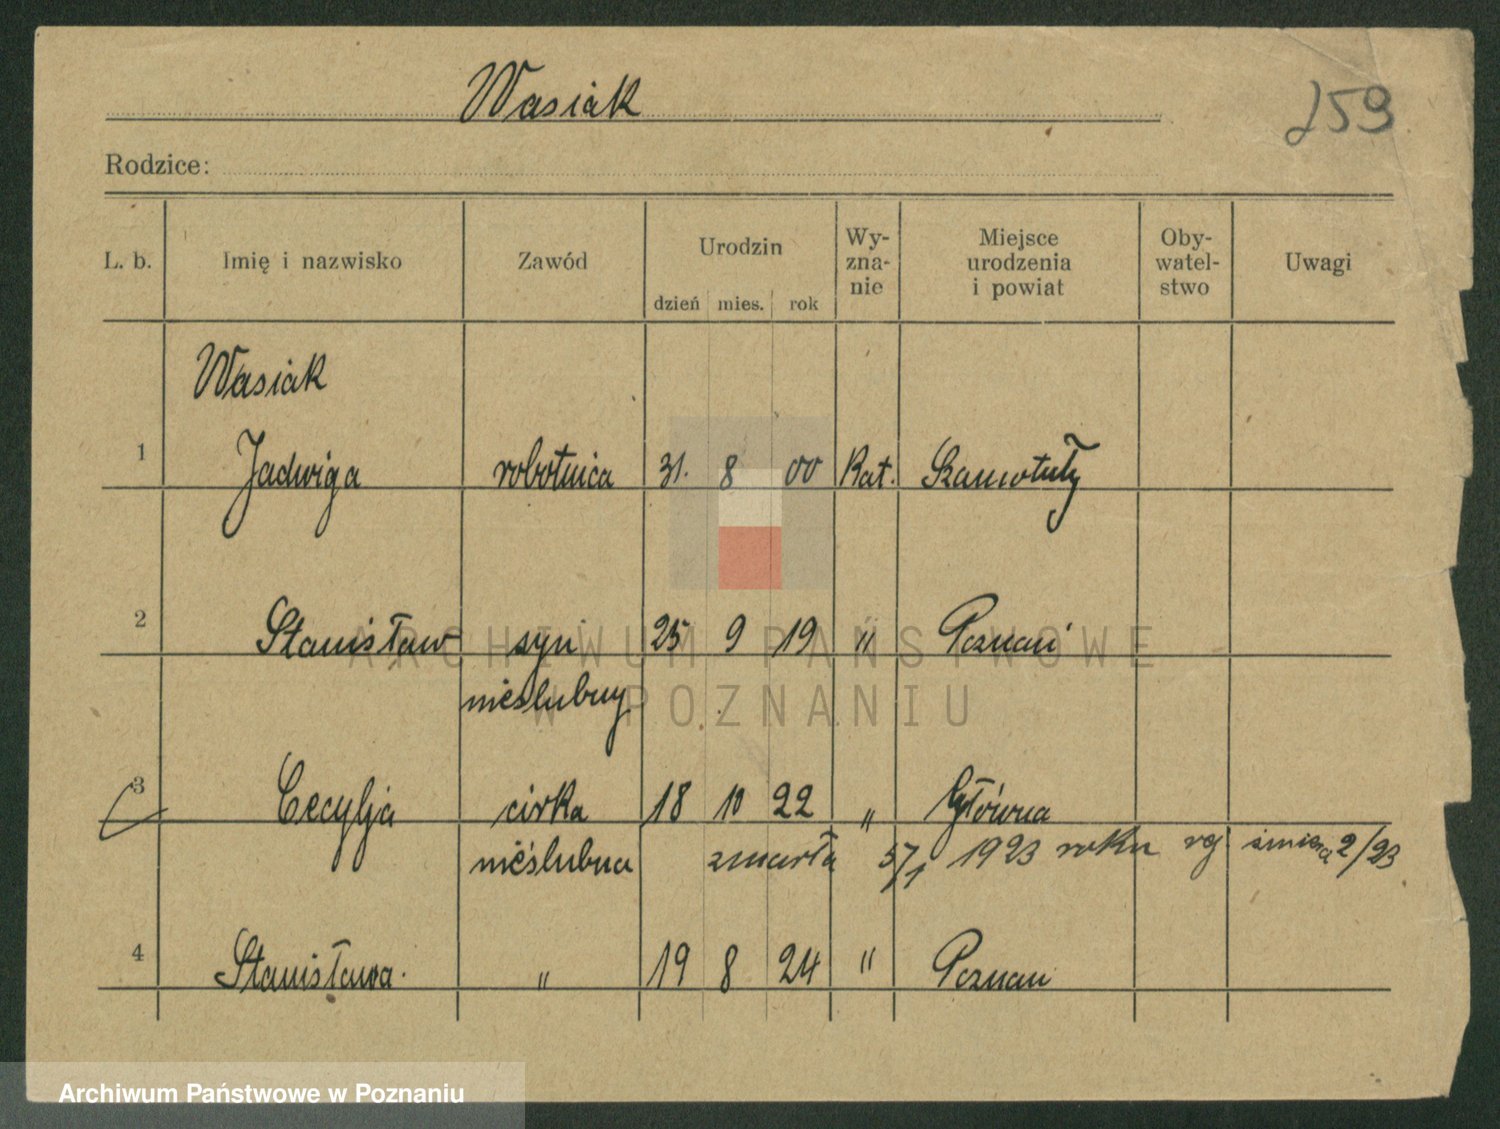 Wasiak
259
Rodzice:
L. b. Imię i nazwisko Zawód Urodzin dzień mies. rok Wy-zna-nie Miejsce urodzenia i powiat Oby-watel-stwo Uwagi
Wasiak
1 Jadwiga robotnica 31. 8 00 Kat. Szamotuły
2 Stanisław syn 25 9 19 " Poznań
nieślubny
3 Cecylja córka 18 10 22 " Główna
nieślubna zmarła 5/1 1923 roku rg śmierci 2/23
4 Stanisława " 19 8 24 " Poznań
ARCHIWUM PAŃSTWOWE
W POZNANIU
Archiwum Państwowe w Poznaniu